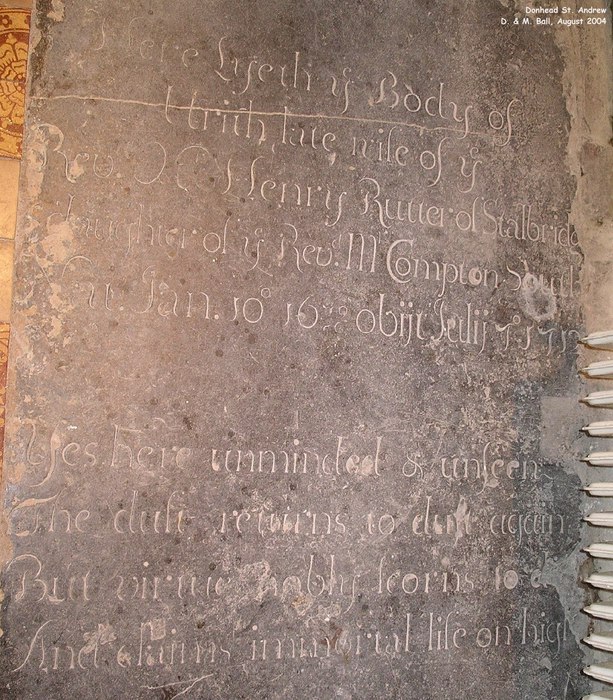 Donhead St. Andrew
D. & M. Ball, August 2004
Here Lyeth yͤ Body of
Urith late wife of yͤ
Revᵈ Mʳ Henry Rutter of Stalbridg
daughter of yͤ Revᵈ Mʳ Compton South
Nat. Jan. 10° 16 obijt Julij 7° 171
Yes here unminded & unseen
The dust returns to dust again
But virtue nobly scorns to
And claims immortal life on high